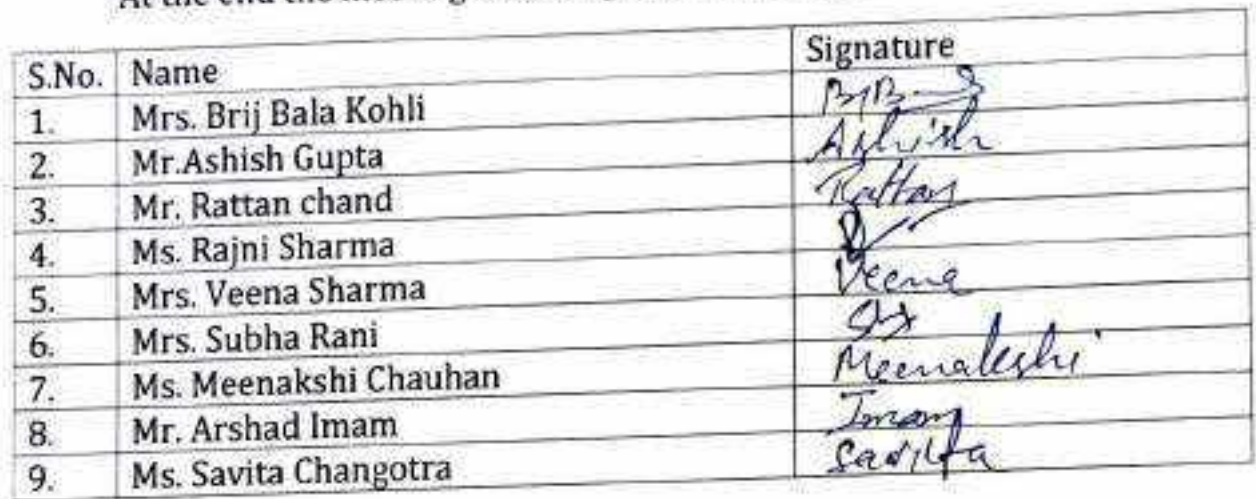 At the end the
S.No. Name Signature
1. Mrs. Brij Bala Kohli
2. Mr.Ashish Gupta Ashish
3. Mr. Rattan chand Rattan
4. Ms. Rajni Sharma
5. Mrs. Veena Sharma Veena
6. Mrs. Subha Rani
7. Ms. Meenakshi Chauhan Meenakshi
8. Mr. Arshad Imam Imam
9. Ms. Savita Changotra Savita